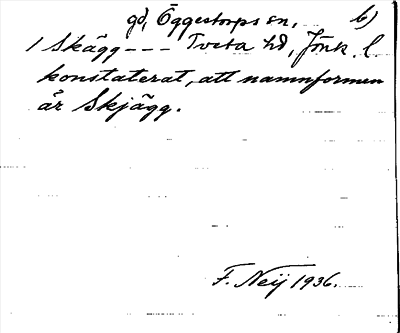 gd, Öggestorps sn, b)
1 Skägg --- Tveta hd, Jönk. l.
konstaterat, att namnformen
är Skjägg.
F. Neij 1936.